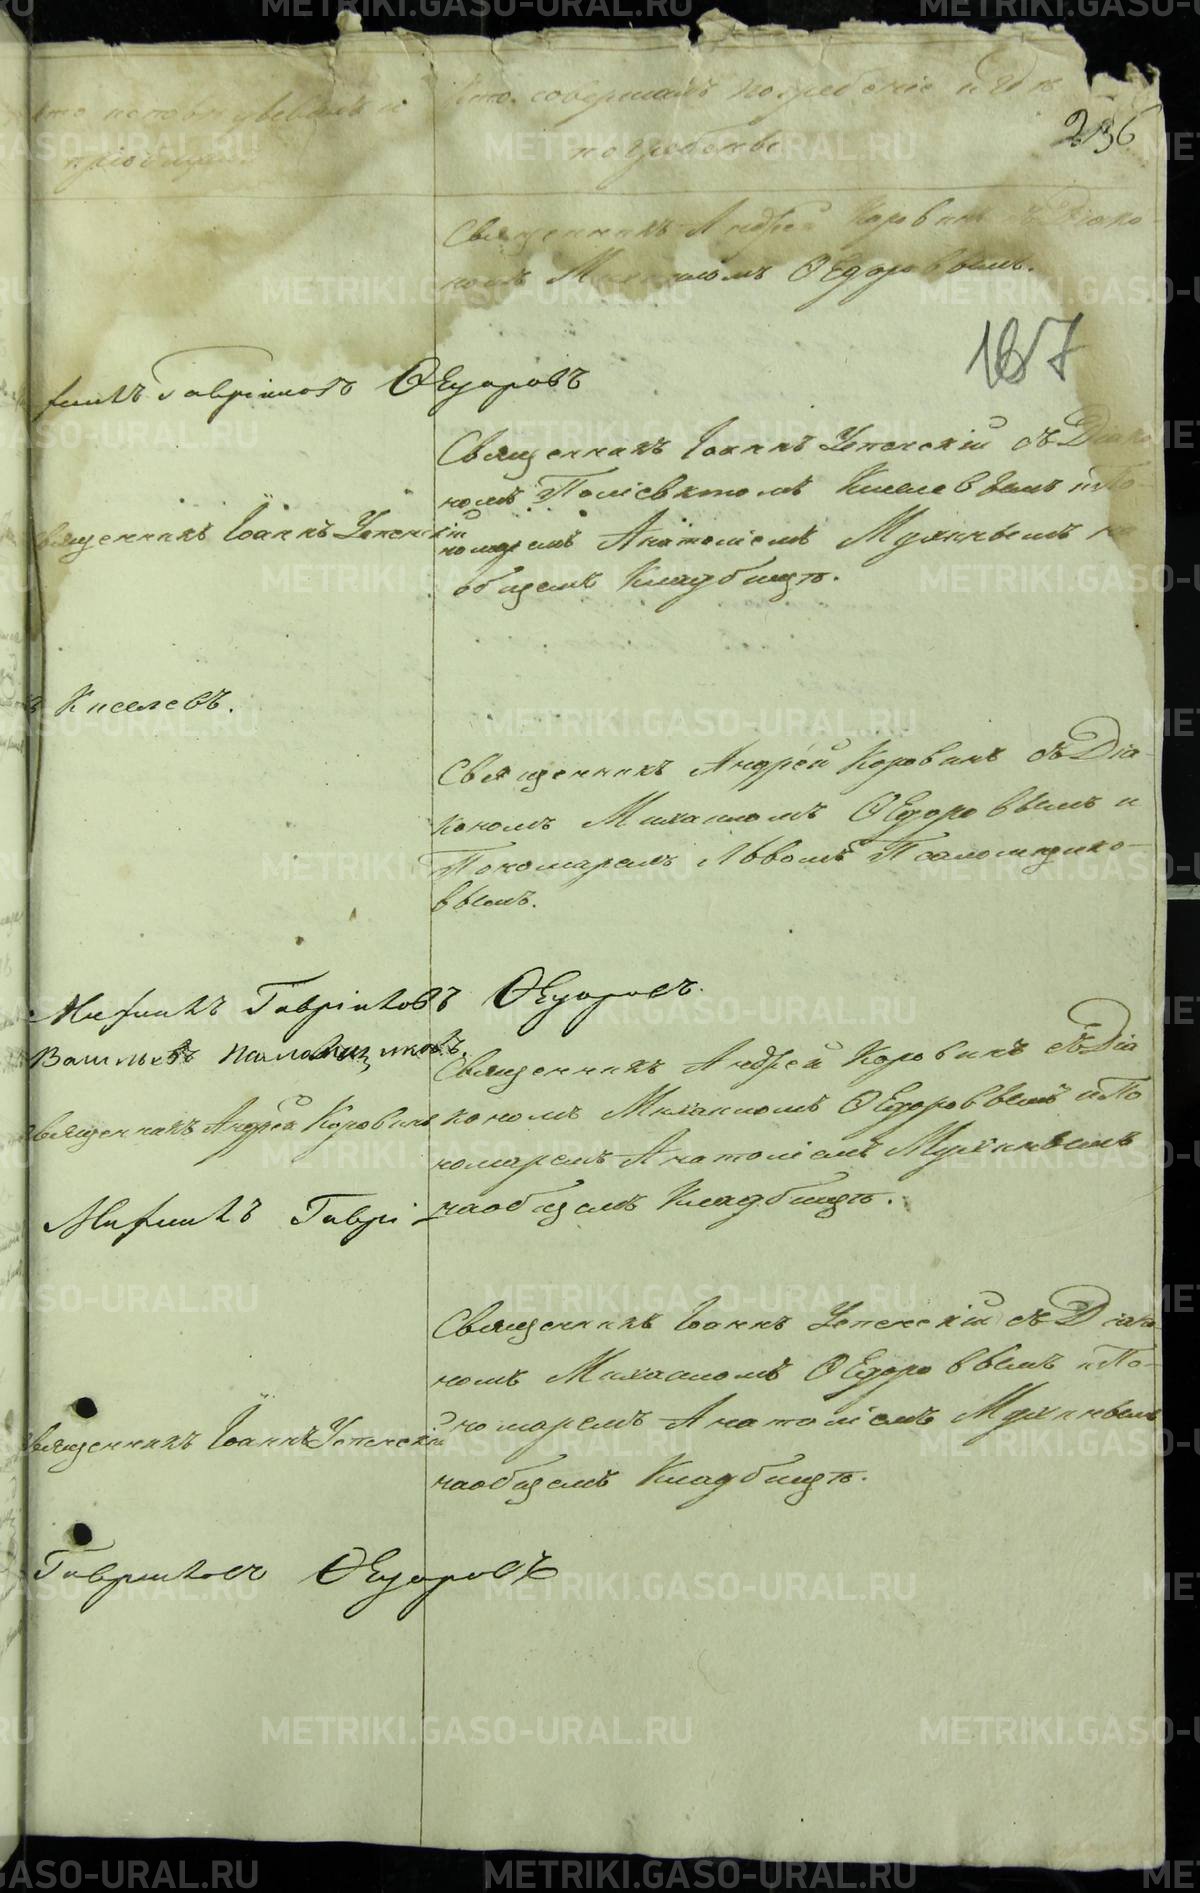 Кто исповѣдывалъ и
пріобщалъ
Кто совершалъ погребеніе и гдѣ
погребены
236
Священникъ Андрей Коровинъ съ Діако-
номъ Михаиломъ Ѳедоровымъ.
187
Гавриловъ Ѳедоровъ
Священникъ Іоаннъ Успенскій съ Діако
номъ Поліевктомъ Киселевымъ и По-
номаремъ Анатоліемъ Мухинымъ на
общемъ Кладбищѣ.
Священникъ Іоаннъ Успенскій
Киселевъ.
Священникъ Андрей Коровинъ съ Діа-
кономъ Михаиломъ Ѳедоровымъ и
Пономаремъ Львомъ Псаломщико-
вымъ.
Гавриловъ Ѳедоровъ.
Священникъ Андрей Коровинъ съ Діа
кономъ Михаиломъ Ѳедоровымъ и По
номаремъ Анатоліемъ Мухинымъ
на общемъ Кладбищѣ.
Священникъ Андрей Коровинъ
Гаврі-
Священникъ Іоаннъ Успенскій съ Діако
номъ Михаиломъ Ѳедоровымъ и По-
номаремъ Анатоліемъ Мухинымъ
на общемъ Кладбищѣ.
Священникъ Іоаннъ Успенскій
Гавриловъ Ѳедоровъ
METRIKI.GASO-URAL.RU